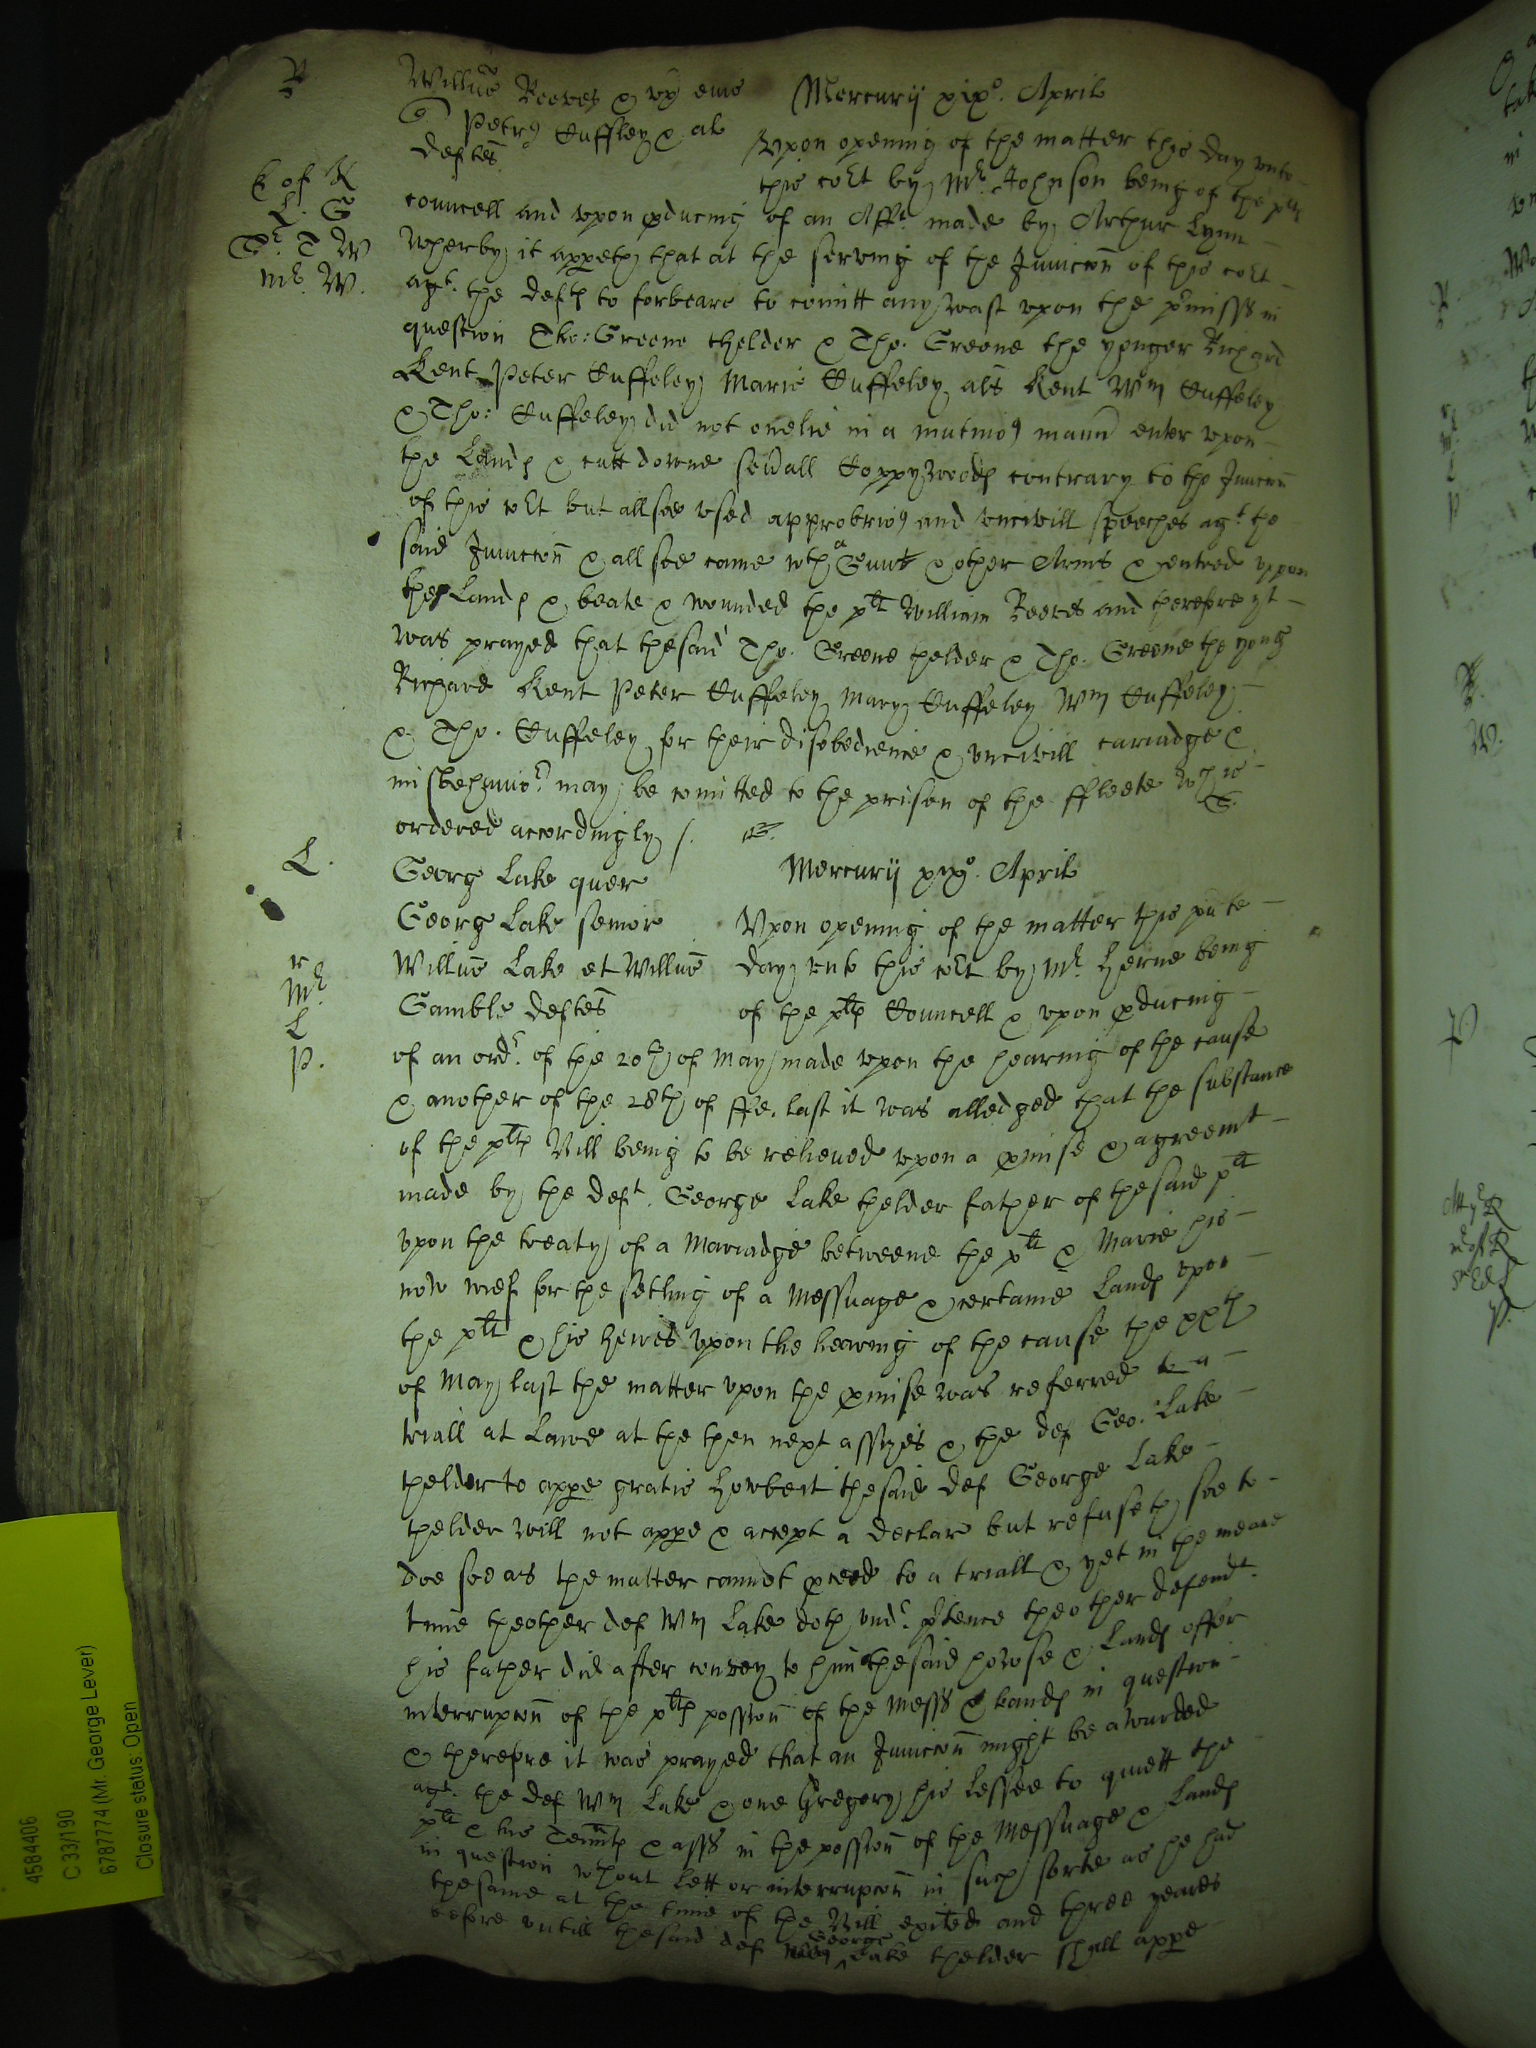 R
Willus Reeves & ux eius Mercurij xixo. Aprilis
Petrus Cuffley & al
deftes Upon opening of the matter this day unto
this cort by Mr. Johnson being of the plts
councell and upon pducing of an Afft. made by Arthur Lynn
wherby it appeth that at the serving of the Iniuccon of this cort
agt. the defts to forbeare to comitt any wast upon the pmisss in
question Tho: Greene thelder & Tho. Greene the yonger Richard
Kent Peter Cuffeley Marie Cuffeley als Kent Wm Cuffeley
& Tho: Cuffeley did not onelie in a mutinos mannr enter upon
the Lands & cutt downe sevrall Coppywoods contrary to the Iniuccon
of this cort but allsoe used approbrios and uncivill speeches agt. the
said Iniuccon & allsoe came wth a Gunn & other Arms & entred uppon
the Lands & beate & wounded the plt William Reeves and therefore yt
was prayed that thesaid Tho. Greene thelder & Tho. Greene the yongr
Richard Kent Peter Cuffeley Mary Cuffeley Wm Cuffeley
& Tho. Cuffeley for their disobedience & uncivill cariadge &
misbehavior may be comitted to the prison of the ffleete wch is
ordered accordingly /.
L.
Georg Lake quer Mercurij xixo. Aprilis
Georg Lake senior Upon opening of the matter this pnte
Willus Lake et Willus day unto this cort by Mr. Herne being
Gamble deftes of the plts Councell & upon pducing
of an ordr. of the 20th of May made upon the hearing of the cause
& another of the 28th of ffe. last it was alledged that the substance
of the plts Bill being to be relieved upon a pmise & agreemt
made by the deft. George Lake thelder father of thesaid plt
upon the treaty of a Mariadge betweene the plt & Marie his
now wief for the setling of a Messuage & certaine Lands upon
the plt & his heires upon the hearing of the cause the xxth
of May last the matter upon the pmise was referred to a
triall at Lawe at the then next assizes & the def Geo. Lake
thelder to appe gratis howbeit thesaid def George Lake
thelder will not appe & accept a declar but refuseth soe to
doe soe as the matter cannot pceed to a triall & yet in the meane
time theother def Wm Lake doth undr. ptence theother defendt.
his father did after convey to him thesaid howse & Lands offer
interrupcon of the plts possion of the Mess & Lands in question
& therefore it was prayed that an Iniuccon might be awarded
agt. the def Wm Lake & one Gregory his Lessee to quiett the
plt & his Tennts & asss in the possion of the Messuage & Lands
in question wthout lett or interrupcon in such sorte as he had
thesame at the time of the Bill exited and three yeares
before untill thesaid def George Lake thelder shall appe
4584406
C 33/190
6787774 (Mr. George Lever)
Closure status: Open